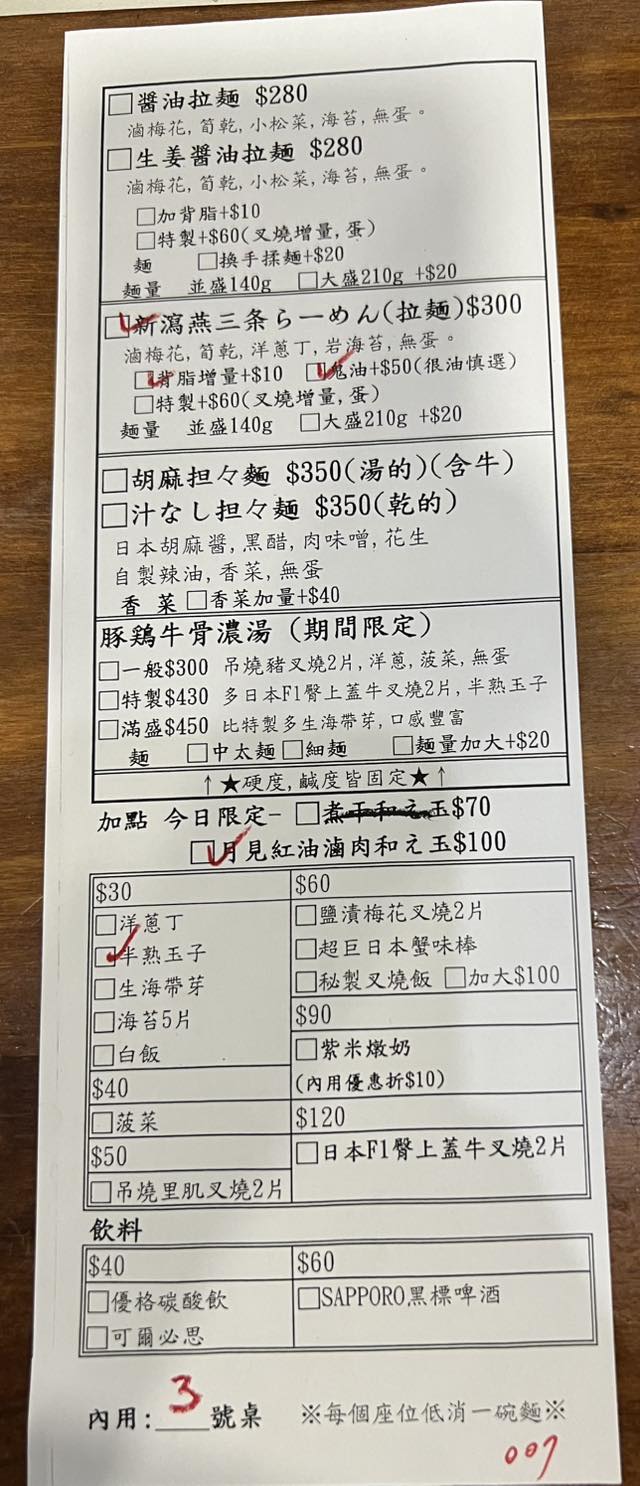 □醬油拉麵 $280
滷梅花, 筍乾, 小松菜, 海苔, 無蛋。
□生姜醬油拉麵 $280
滷梅花, 筍乾, 小松菜, 海苔, 無蛋。
□加背脂+$10
□特製+$60(叉燒增量, 蛋)
麵 □換手揉麵+$20
麵量 並盛140g □大盛210g +$20
□新瀉燕三条らーめん(拉麵)$300
滷梅花, 筍乾, 洋蔥丁, 岩海苔, 無蛋。
□背脂增量+$10 □鬼油+$50(很油慎選)
□特製+$60(叉燒增量, 蛋)
麵量 並盛140g □大盛210g +$20
□胡麻担々麵 $350(湯的)(含牛)
□汁なし担々麵 $350(乾的)
日本胡麻醬, 黑醋, 肉味噌, 花生
自製辣油, 香菜, 無蛋
香 菜 □香菜加量+$40
豚鶏牛骨濃湯 (期間限定)
□一般$300 吊燒豬叉燒2片, 洋蔥, 菠菜, 無蛋
□特製$430 多日本F1臀上蓋牛叉燒2片, 半熟玉子
□滿盛$450 比特製多生海帶芽, 口感豐富
麵 □中太麵 □細麵 □麵量加大+$20
↑★硬度, 鹹度皆固定★↑
加點 今日限定- □煮干和え玉$70
□月見紅油滷肉和え玉$100
$30 $60
□洋蔥丁 □鹽漬梅花叉燒2片
□半熟玉子 □超巨日本蟹味棒
□生海帶芽 □秘製叉燒飯 □加大$100
□海苔5片 $90
□白飯 □紫米燉奶
$40 (內用優惠折$10)
□菠菜 $120
$50 □日本F1臀上蓋牛叉燒2片
□吊燒里肌叉燒2片
飲料
$40 $60
□優格碳酸飲 □SAPPORO黑標啤酒
□可爾必思
內用:3號桌 ※每個座位低消一碗麵※
007